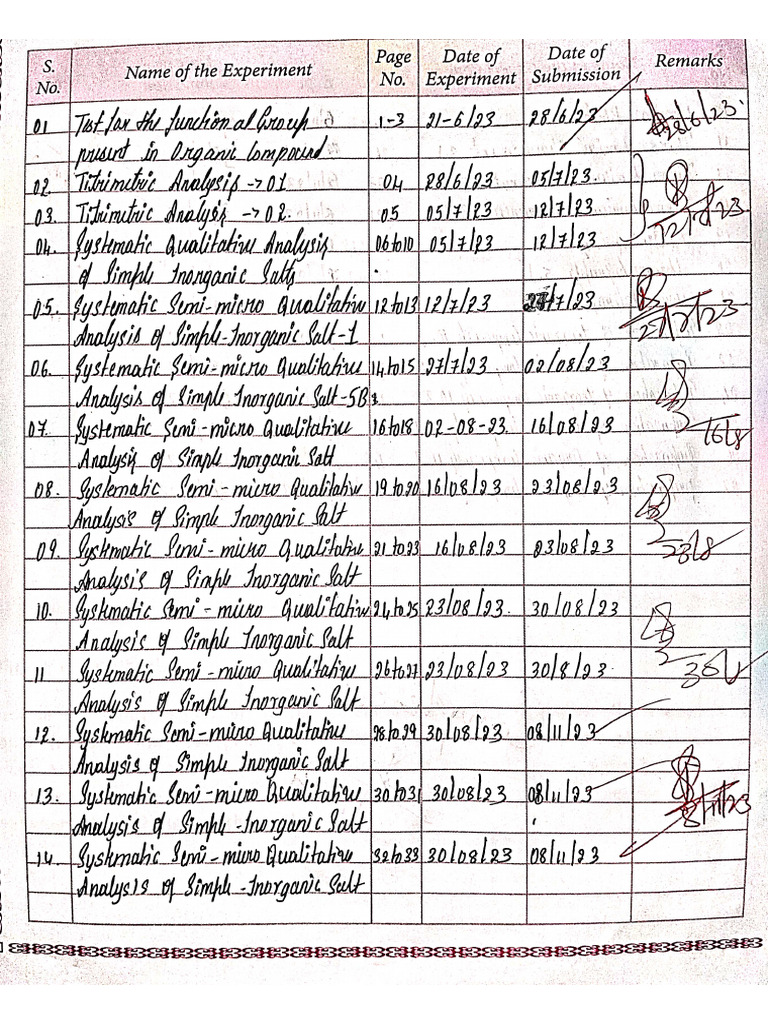 S. No. Name of the Experiment Page No. Date of Experiment Date of Submission Remarks
01 Test for the functional Group 1-3 21-6/23 28/6/23 28/6/23
present in Organic Compound
02. Titrimetric Analysis → 01 04 28/6/23 05/7/23.
03. Titrimetric Analysis → 02. 05 05/7/23 12/7/23 12/7/23
04. Systematic Qualitative Analysis 06to10 05/7/23 12/7/23
of Simple Inorganic Salts
05. Systematic Semi-micro Qualitative 12to13 12/7/23 27/7/23 27/7/23
Analysis of Simple-Inorganic Salt-1
06. Systematic Semi-micro Qualitative 14to15 27/7/23 02/08/23
Analysis of Simple Inorganic Salt-5B
07. Systematic Semi-micro Qualitative 16to18 02-08-23. 16/08/23 16/8
Analysis of Simple Inorganic Salt
08. Systematic Semi-micro Qualitative 19to20 16/08/23 23/08/23
Analysis of Simple Inorganic Salt
09. Systematic Semi-micro Qualitative 21to23 16/08/23 23/08/23 23/8
Analysis of Simple Inorganic Salt
10. Systematic Semi-micro Qualitative 24to25 23/08/23. 30/08/23
Analysis of Simple Inorganic Salt
11 Systematic Semi-micro Qualitative 26to27 23/08/23 30/8/23
Analysis of Simple Inorganic Salt
12. Systematic Semi-micro Qualitative 28to29 30/08/23 08/11/23
Analysis of Simple Inorganic Salt
13. Systematic Semi-micro Qualitative 30to31 30/08/23 08/11/23 8/11/23
Analysis of Simple-Inorganic Salt
14. Systematic Semi-micro Qualitative 32to33 30/08/23 08/11/23
Analysis of Simple-Inorganic Salt